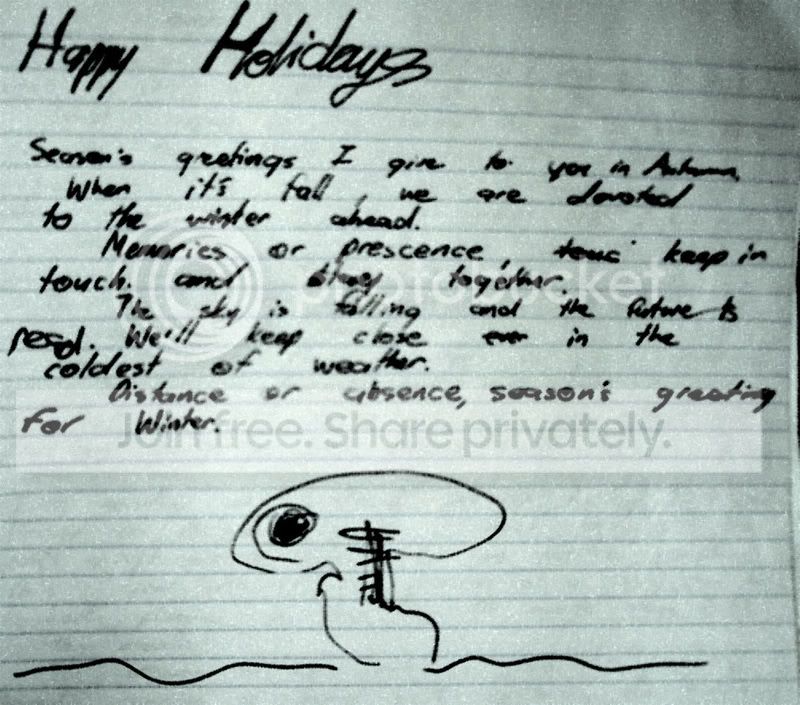 Happy Holidays
Season's greetings I give to you in Autumn,
When it's fall, we are devoted
to the winter ahead.
Memories or prescence, keep in
touch. and stay together.
The sky is falling and the future is
read. We'll keep close ever in the
coldest of weather.
Distance or absence, season's greeting
for Winter.
photobucket
Join free. Share privately.